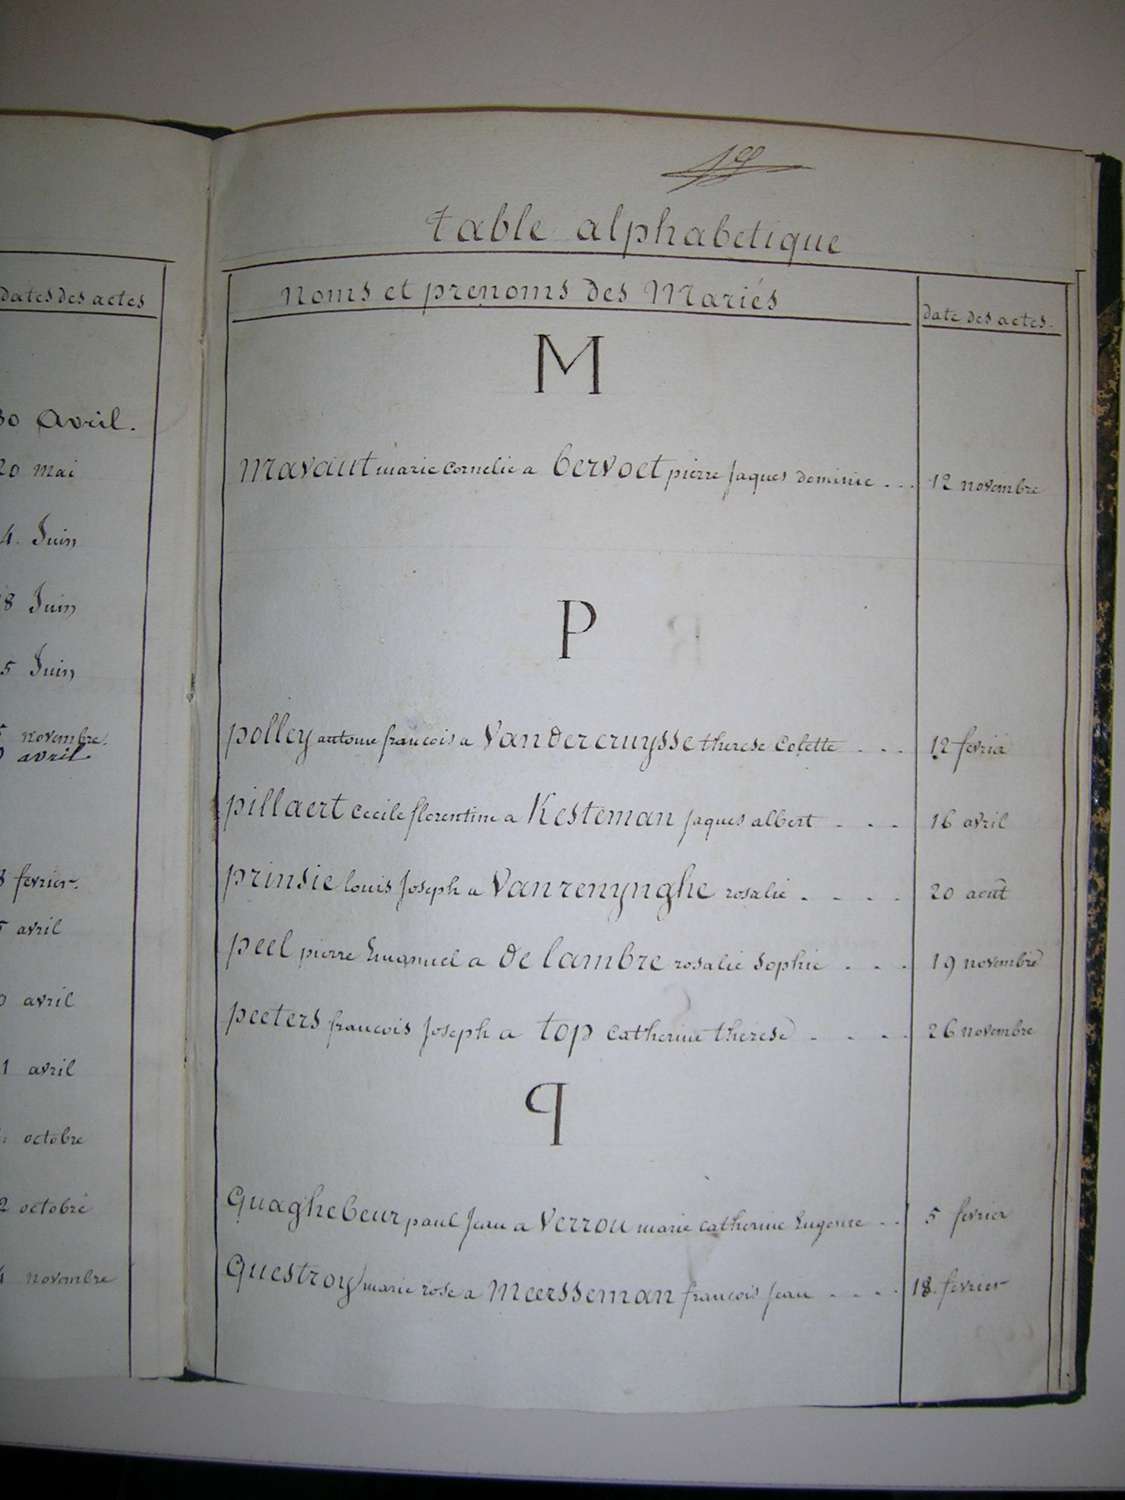 dates des actes
30 Avril.
20 mai
4. Juin
18 Juin
5 Juin
novembre.
avril
fevrier.
avril
avril
1 avril
octobre
2 octobre
novembre
table alphabetique
noms et prenoms des Mariés
date des actes.
M
mavaut marie cornelie a bervoet pierre jaques dominic ... 12 novembre
P
polley antoine francois a Vandercruysse therese Colette ... 12 fevrier
pillaert Cecile florentine a Kesteman jaques albert ... 16 avril
prinsie louis Joseph a Vanrenynghe rosalie .... 20 août
peel pierre Emanuel a de lambre rosalie sophie ... 19 novembre
peeters francois Joseph a top catherine therese .... 26 novembre
q
quaghebeur paul Jean a Verrou marie catherine Eugenie .. 5 fevrier
questroy marie rose a Meersseman francois Jean .... 18 fevrier